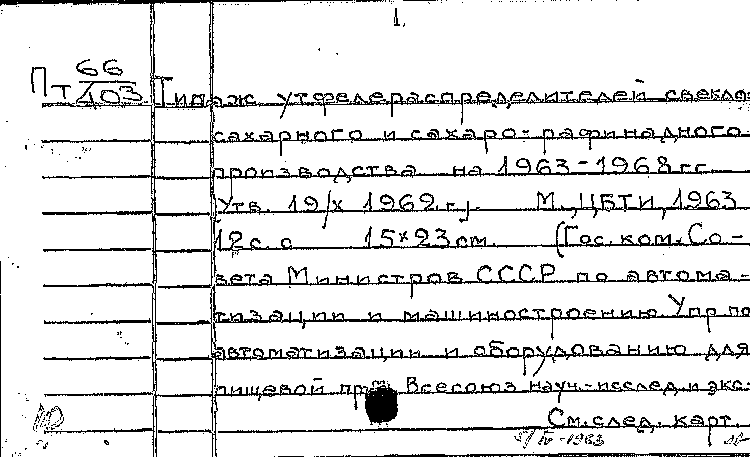 1.
Пт 66/403 Типаж утфелераспределителей свекло-
сахарного и сахаро-рафинадного
производства на 1963-1968 гг
Утв. 19/X 1962 г.]. М., ЦБТИ, 1963
12 с. с 15×23 см. (Гос. ком. Со-
вета Министров СССР по автома-
тизации и машиностроению. Упр по
автоматизации и оборудованию для
пищевой пром Всесоюз науч.-исслед. и экс-
См. след. карт.
5/IV-1963